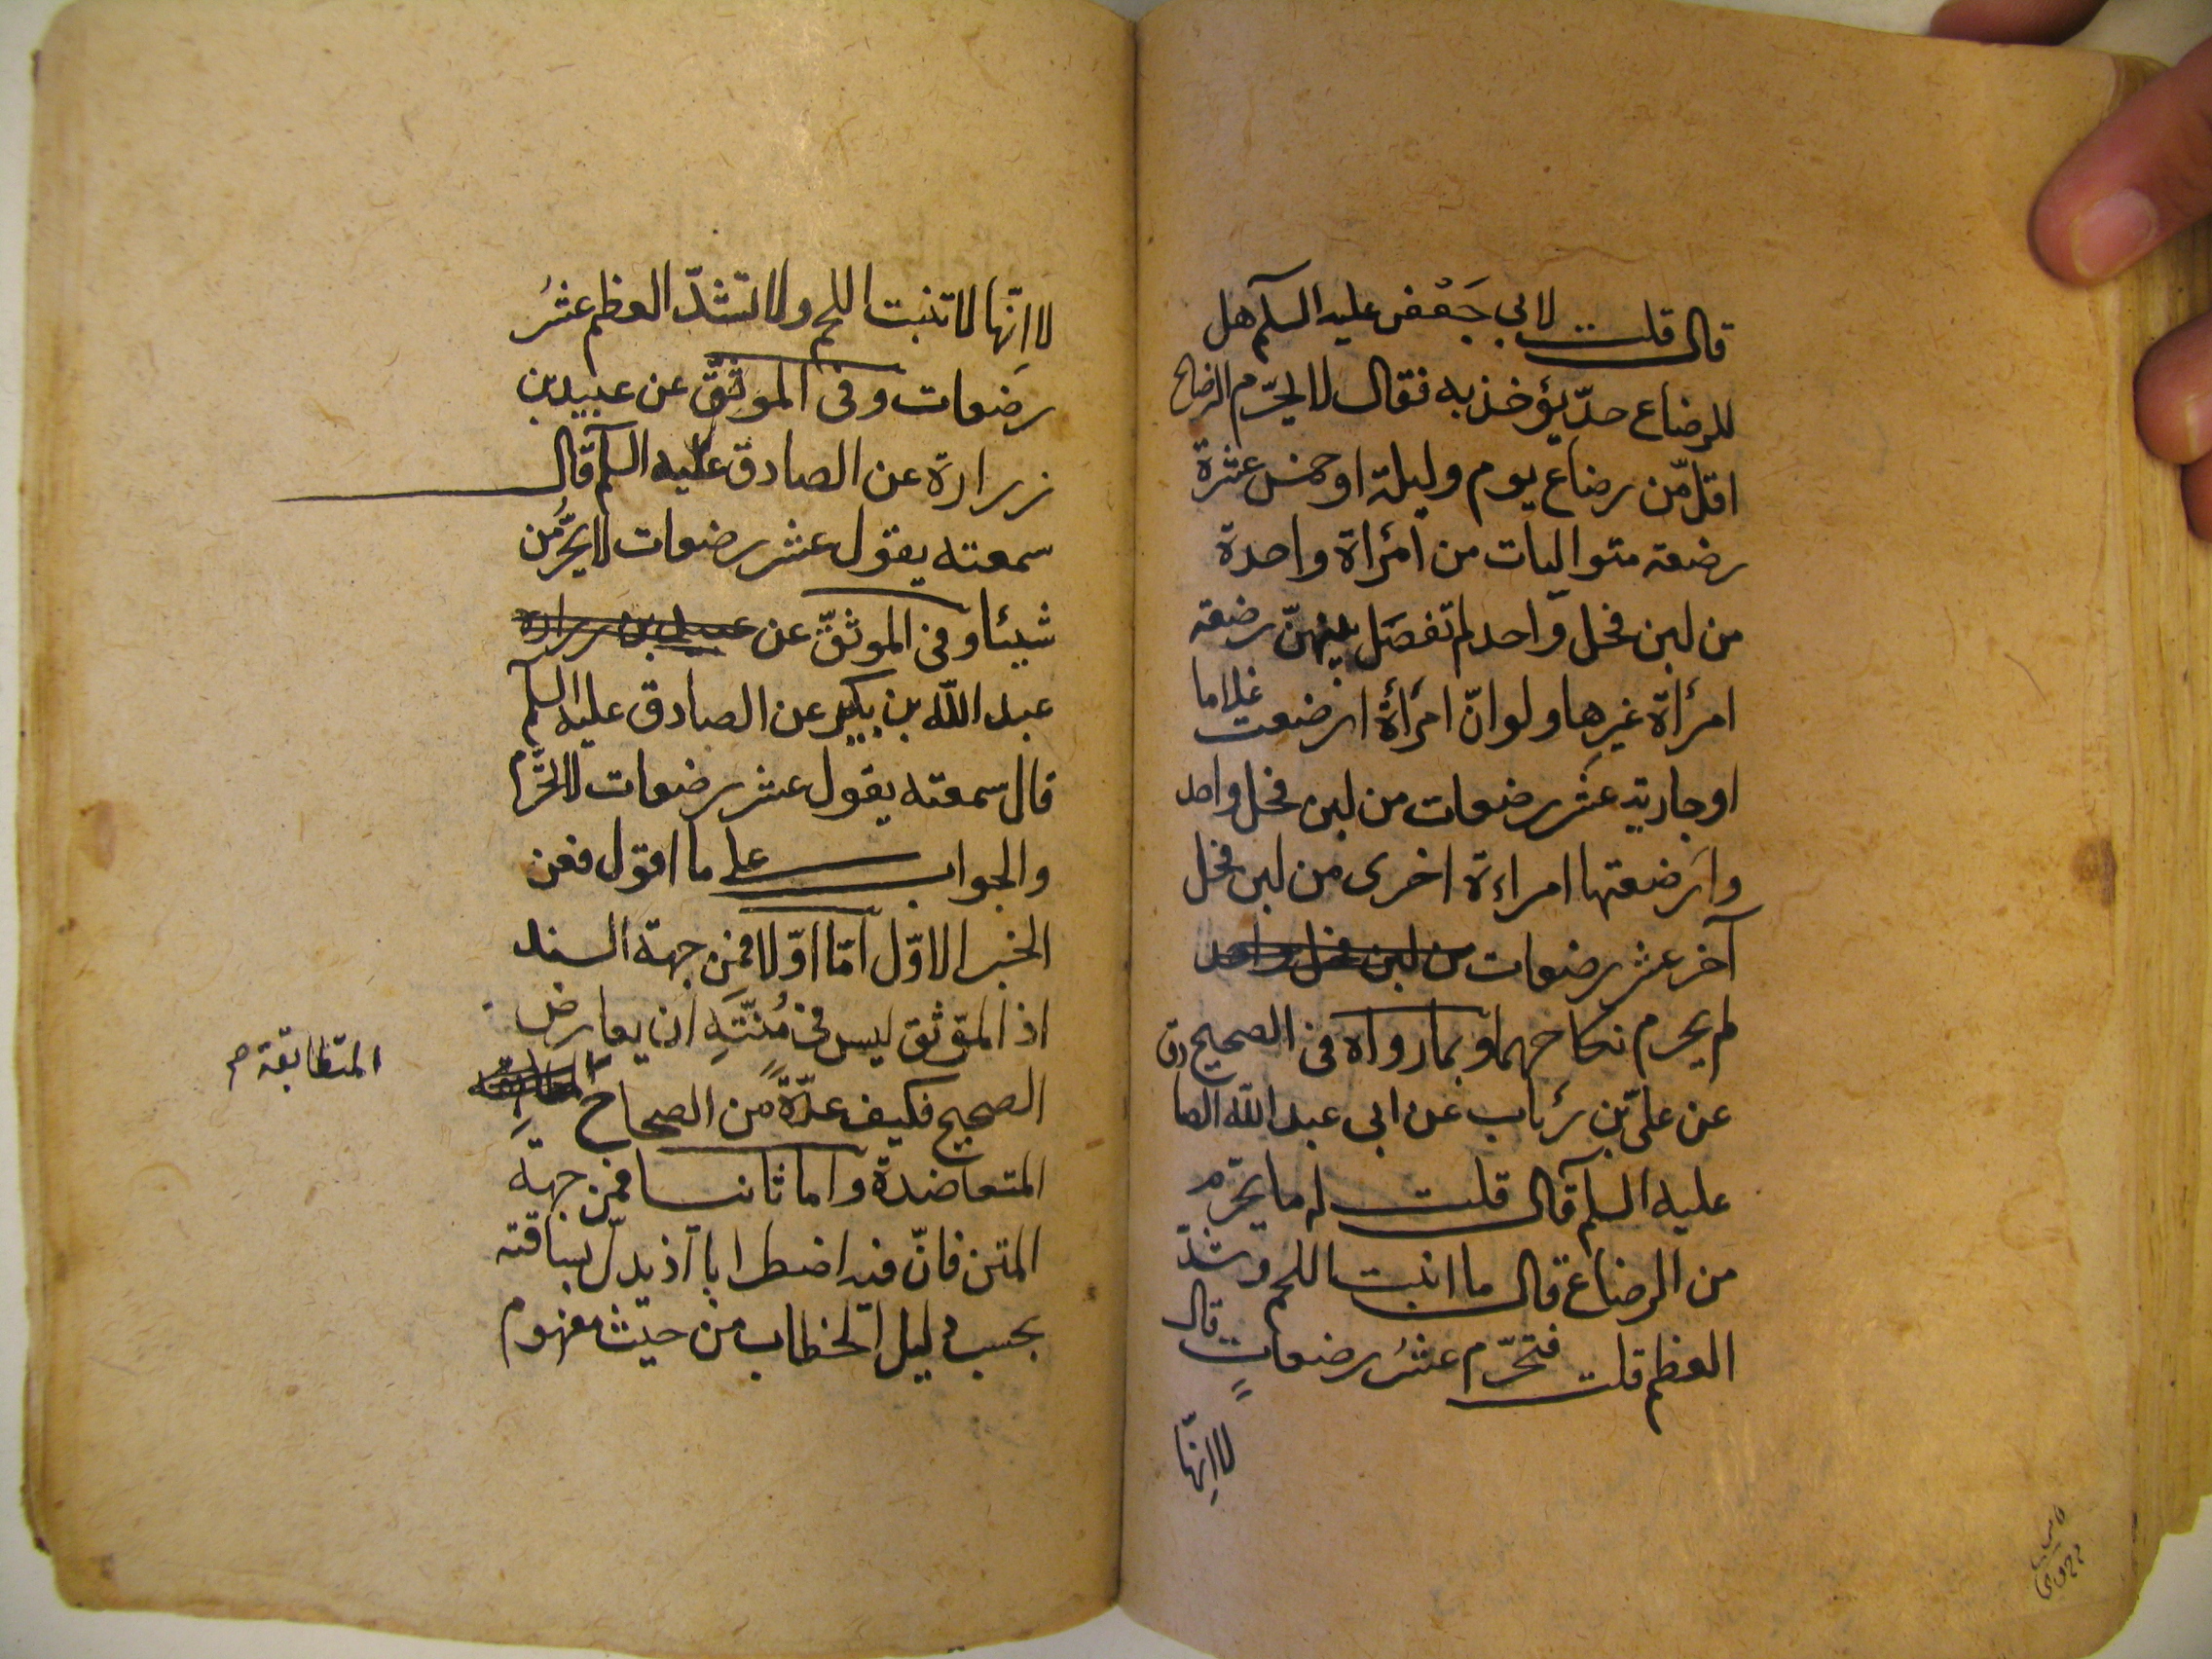 قال قلت لابي جَعْفر عليه السلم هل
للرضاع حدّ يؤخذ به فقال لا يحرّم الرضاع
اقلّ من رضاع يوم وليلة او خمس عشرة
رضعة متواليات من امرأة واحدة
من لبن فحل واحد لم تفصل بينهنّ رضعة
امرأة غيرها ولو انّ امرأة ارضعت غلاما
او جارية عشر رضعات من لبن فحل واحد
وارضعتها امراءة اخرى من لبن فحل
آخر عشر رضعات من لبن فحل واحد
لم يحرم نكاحهما وبما رواه فى الصحيح
عن علىّ بن رئاب عن ابى عبد الله الصادق
عليه السلم قال قلت له ما يحرّم
من الرضاع قال ما انبت اللحم وشدّ
العظم قلت فتحرّم عشرُ رضعاتٍ قال
لا انّها
لا انّها لا تنبت اللحم ولا تشدّ العظم عشرُ
رضعات وفى الموثقّ عن عبيد بن
زرارة عن الصادق عليه السلم قال
سمعته يقول عشر رضعات لا يحرّمن
شيئا وفى الموثقّ عن عبيد بن زرارة
عبد الله بن بكير عن الصادق عليه السلم
قال سمعته يقول عشر رضعات لا تحرّم
والجواب على ما اقول فعن
الخبر الاوّل امّا اوّلا فمن جهة السند
اذ الموثق ليس فى مُنّتِه ان يعارض
الصحيح فكيف عدّةً من الصحاح
المتطابقة
المتعاضدة واما ثانيا فمن جهة
المتن فانّ فيه اضطرابا اذ يدلّ بسياقته
بحسب دليل الخطاب من حيث مفهوم